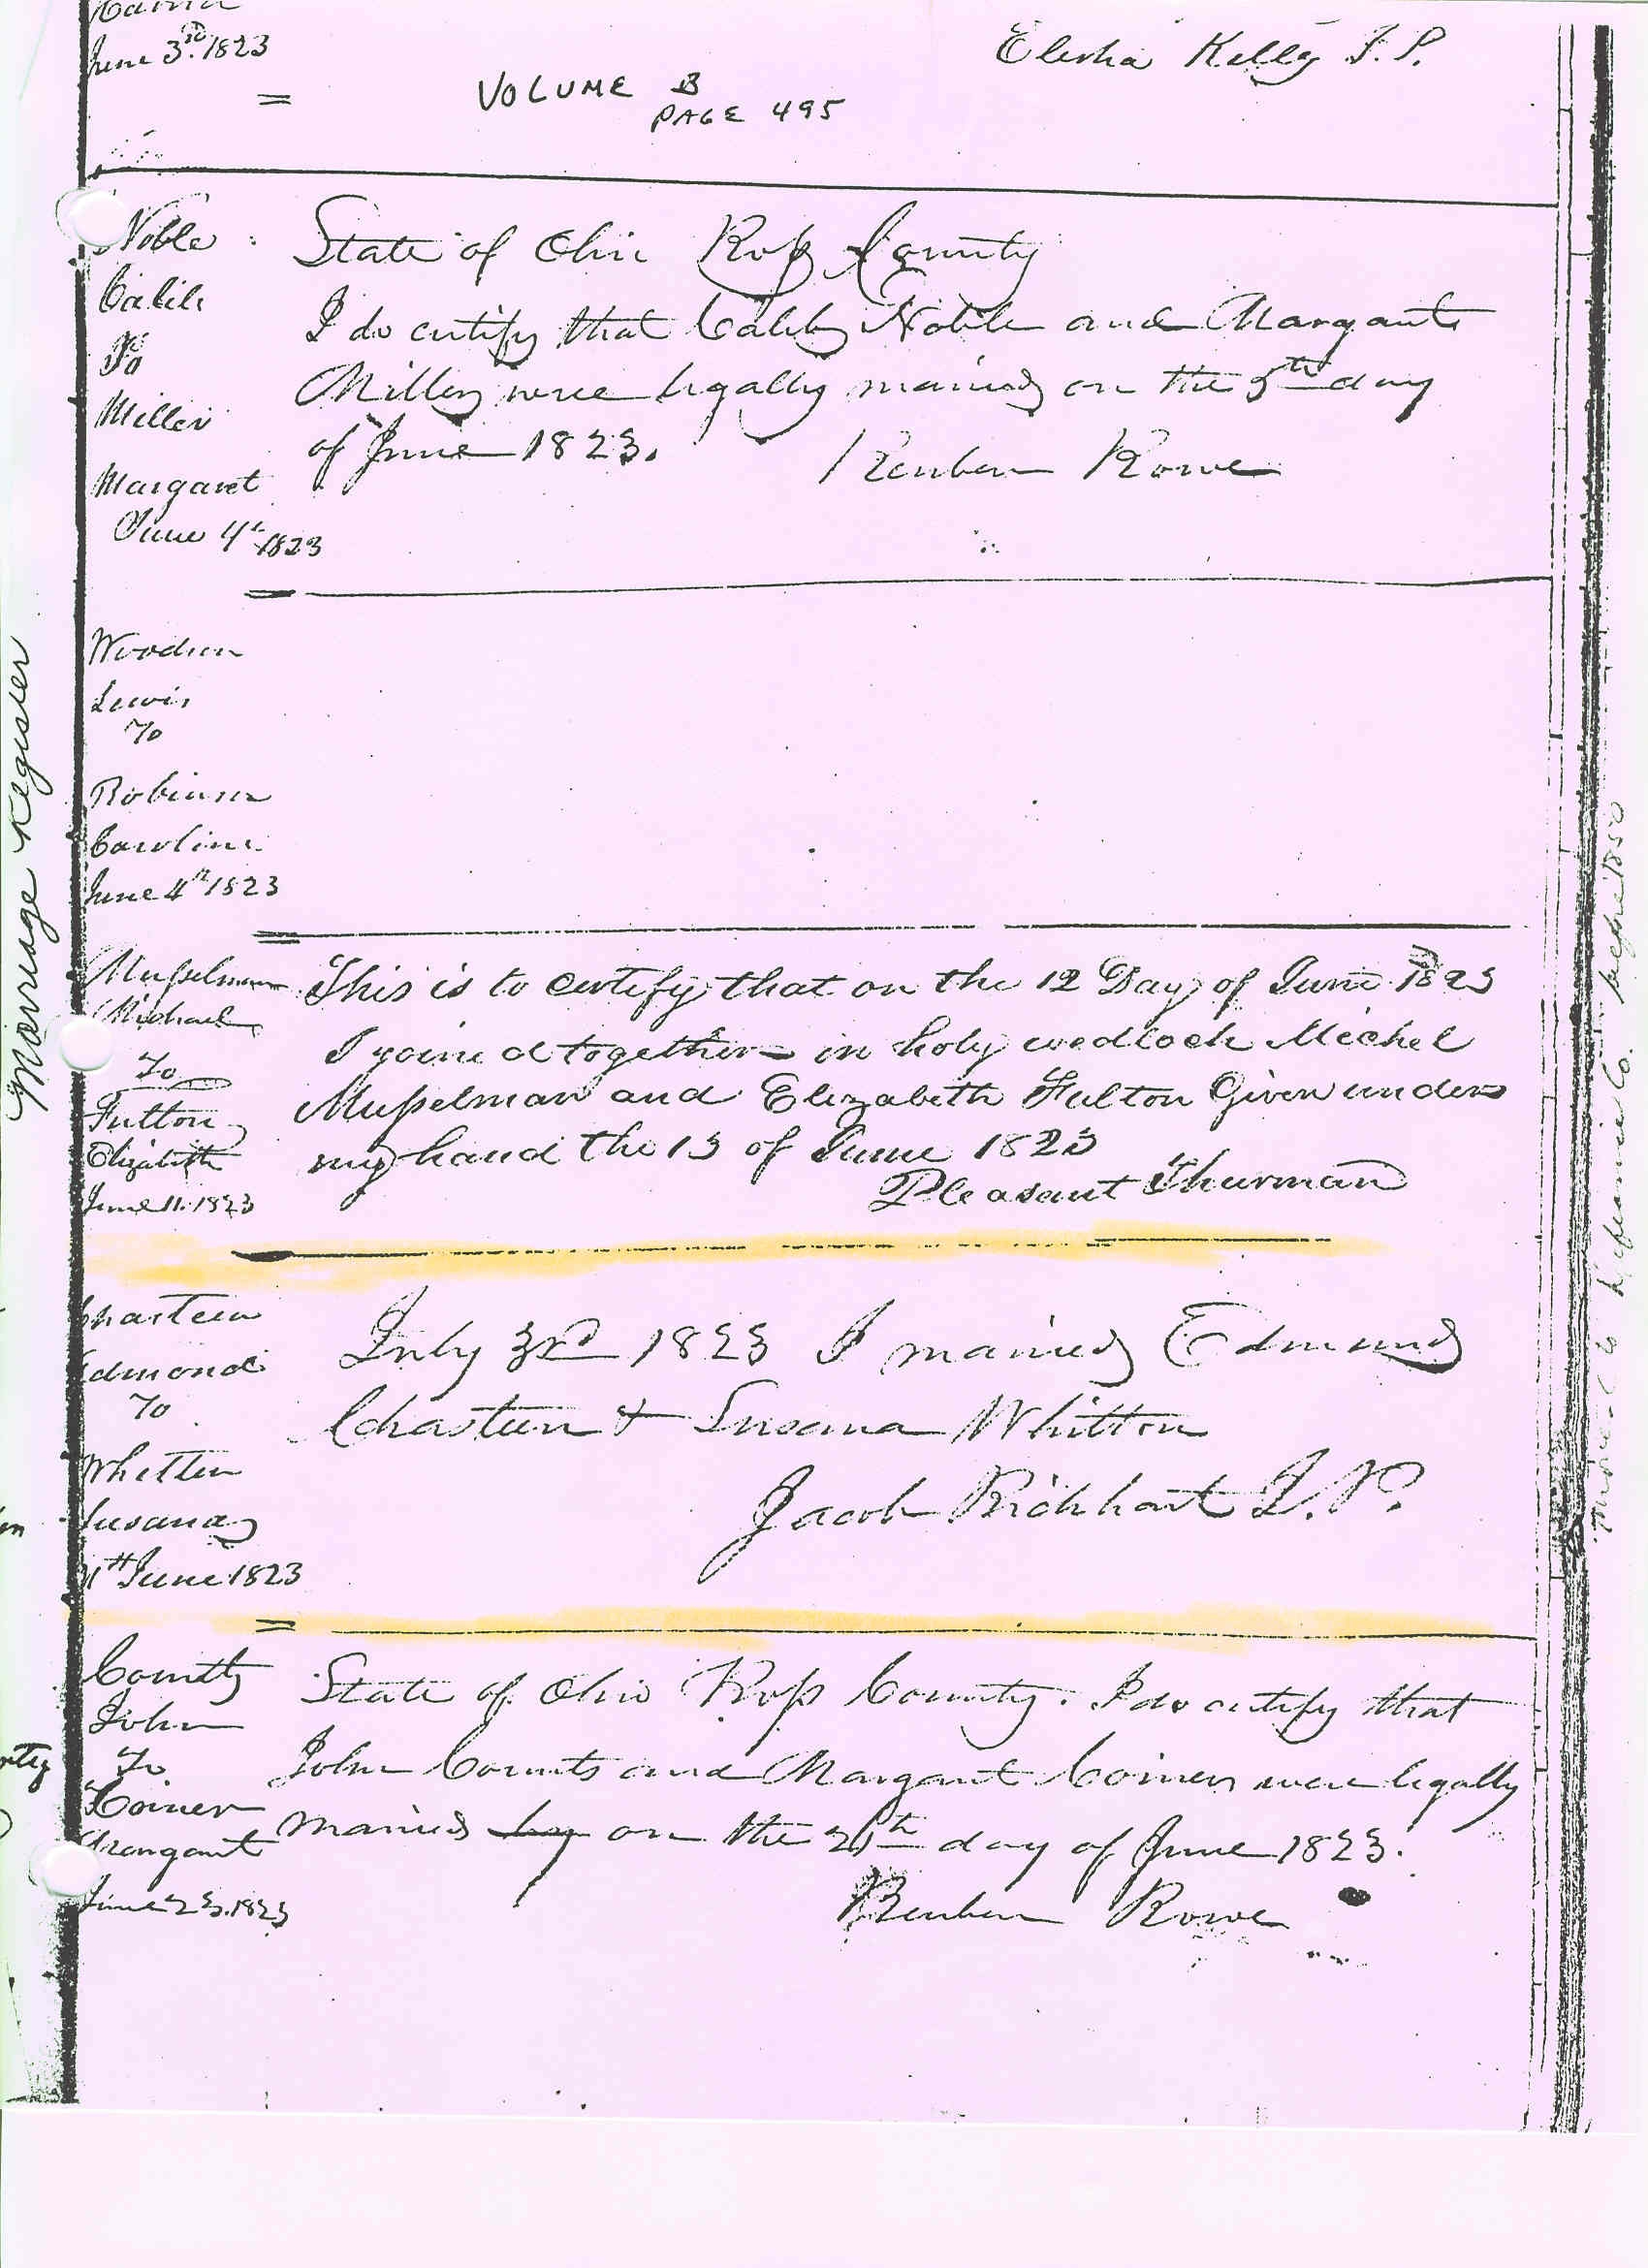 June 3rd. 1823
Elisha Kelly J. P.
VOLUME B
PAGE 495
Noble
Calib
To
Miller
Margaret
June 4th 1823
State of Ohio Ross County
I do certify that Calib Noble and Margaret
Miller were legally married on the 5th day
of June 1823.
Reuben Rowe
Lewis
To
Robinson
Caroline
June 4th 1823
Musselman
Michael
To
Fulton
Elizabeth
June 11. 1823
This is to certify that on the 12 Day of June 1823
I joined together in holy wedlock Michel
Musselman and Elizabeth Fulton Given under
my hand the 13 of June 1823
Pleasant Thurman
Chasteen
Edmond
To
Whitten
Susana
June 1823
July 3rd 1823 I married Edmund
Chasteen & Susana Whitton
Jacob Richhart J. P.
John
To
Coiner
Margaret
June 23. 1823
State of Ohio Ross County. I do certify that
John Counts and Margaret Coiner were legally
married by on the day of June 1823.
Reuben Rowe
Marriage Register
Moved to Defiance Co. before 1850